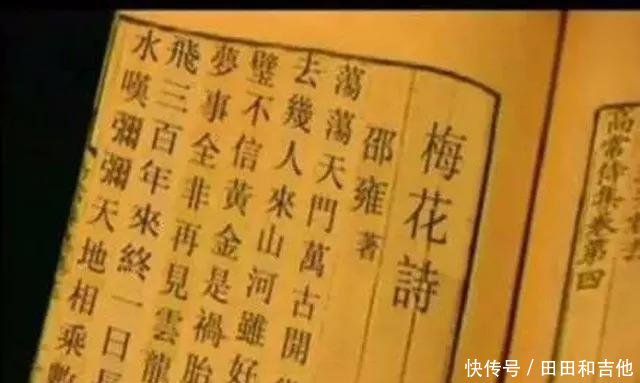 高常侍集卷第四
梅花詩
邵雍 著
蕩蕩天門萬古開
去幾人來山河雖好
璧不信黃金是禍胎
夢事全非再見雲龍
飛三百年來終一日
水嘆彌彌天地相乘數
快传号/田田和吉他